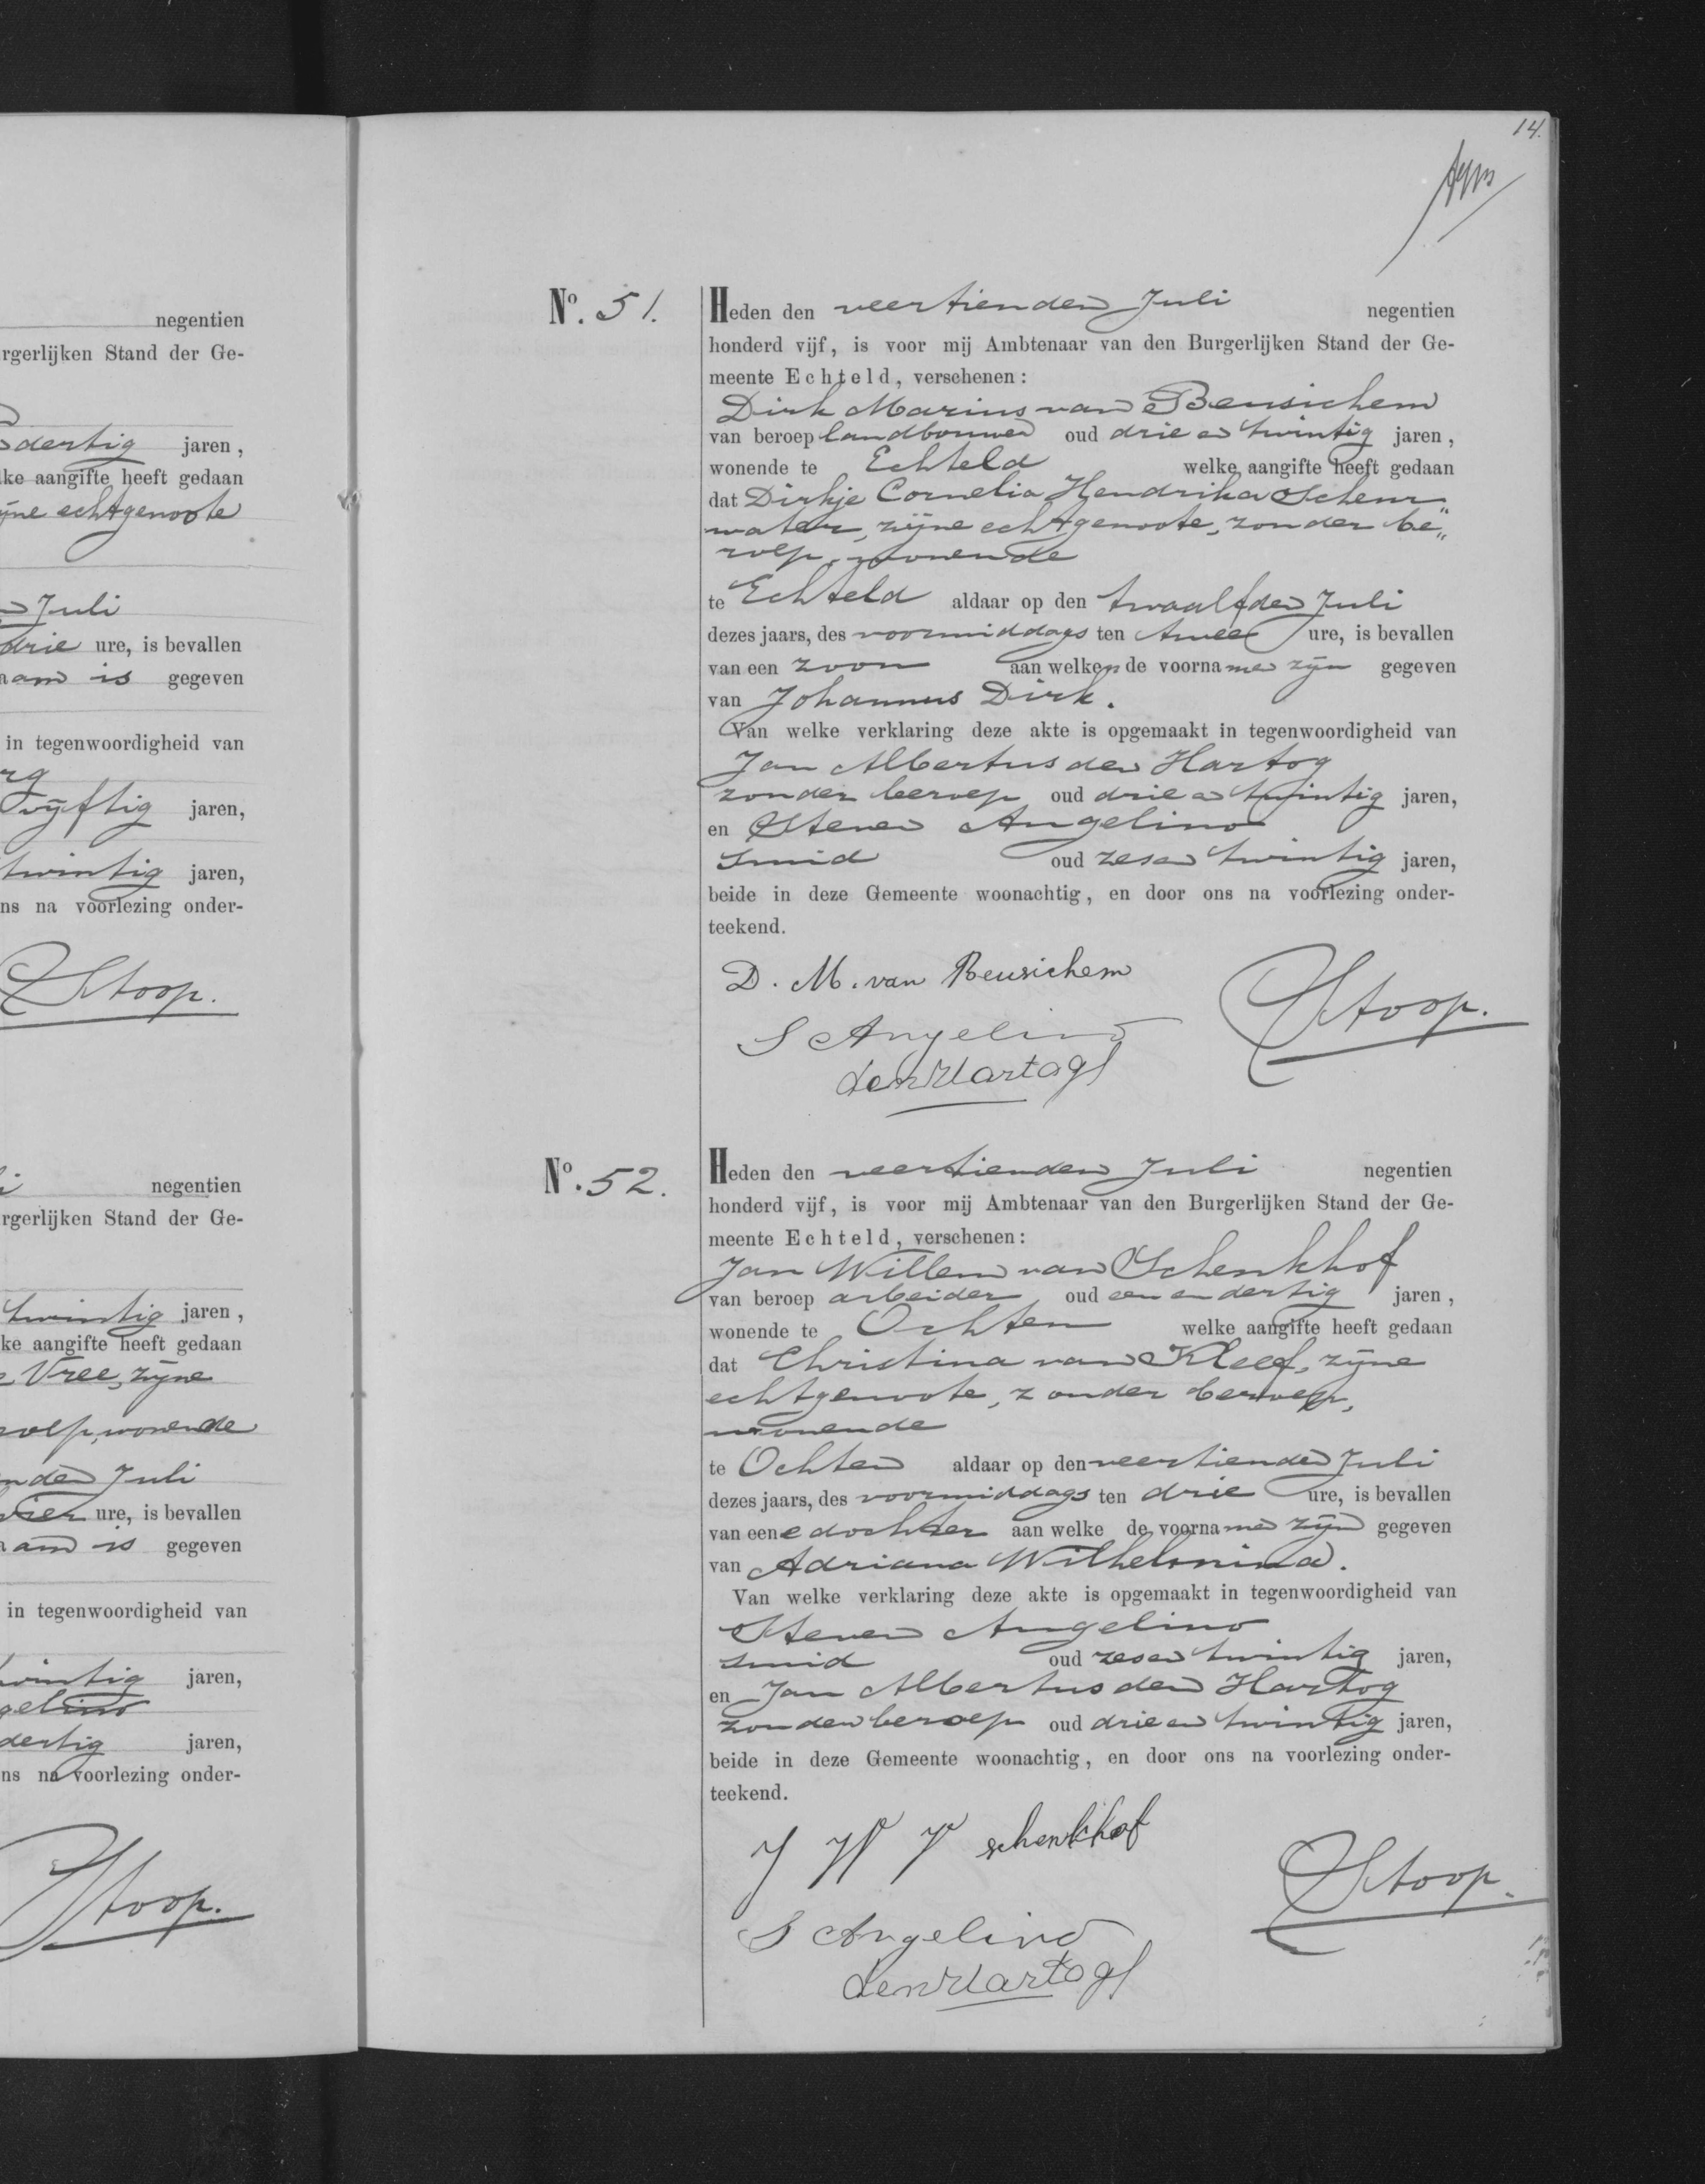 negentien
rgerlijken Stand der Ge-
dertig jaren,
lke aangifte heeft gedaan
ijne echtgenoote
Juli
drie ure, is bevallen
aam is gegeven
in tegenwoordigheid van
rg
vijftig jaren,
twintig jaren,
ns na voorlezing onder-
Stoop.
negentien
rgerlijken Stand der Ge-
twintig jaren,
ke aangifte heeft gedaan
Vree, zijne
roep, wonende
nden Juli
vier ure, is bevallen
aam is gegeven
in tegenwoordigheid van
twintig jaren,
gelino
dertig jaren,
ns na voorlezing onder-
Stoop.
14.
No. 51.
Heden den veertienden Juli negentien
honderd vijf, is voor mij Ambtenaar van den Burgerlijken Stand der Ge-
meente Echteld, verschenen:
Dirk Marinus van Beusichem
van beroep landbouwer oud drie en twintig jaren,
wonende te Echteld welke aangifte heeft gedaan
dat Dirkje Cornelia Hendrika Scheur
water, zijne echtgenoote, zonder be„
roep, wonende
te Echteld aldaar op den twaalfden Juli
dezes jaars, des voormiddags ten twee ure, is bevallen
van een zoon aan welken de voornamen zijn gegeven
van Johannus Dirk.
Van welke verklaring deze akte is opgemaakt in tegenwoordigheid van
Jan Albertus den Hartog
zonder beroep oud drie en twintig jaren,
en Steven Angelino
smid oud zes en twintig jaren,
beide in deze Gemeente woonachtig, en door ons na voorlezing onder-
teekend.
D. M. van Beusichem
Stoop.
S Angelino
den Hartog
No. 52.
Heden den veertienden Juli negentien
honderd vijf, is voor mij Ambtenaar van den Burgerlijken Stand der Ge-
meente Echteld, verschenen:
Jan Willem van Schenkhof
van beroep arbeider oud een en dertig jaren,
wonende te Ochten welke aangifte heeft gedaan
dat Christina van Kleef, zijne
echtgenoote, zonder beroep,
wonende
te Ochten aldaar op den veertienden Juli
dezes jaars, des voormiddags ten drie ure, is bevallen
van eene dochter aan welke de voornamen zijn gegeven
van Adriana Wilhelmina.
Van welke verklaring deze akte is opgemaakt in tegenwoordigheid van
Steven Angelino
smid oud zes en twintig jaren,
en Jan Albertus den Hartog
zonder beroep oud drie en twintig jaren,
beide in deze Gemeente woonachtig, en door ons na voorlezing onder-
teekend.
J W V schenkhof
Stoop.
S Angelino
den Hartog